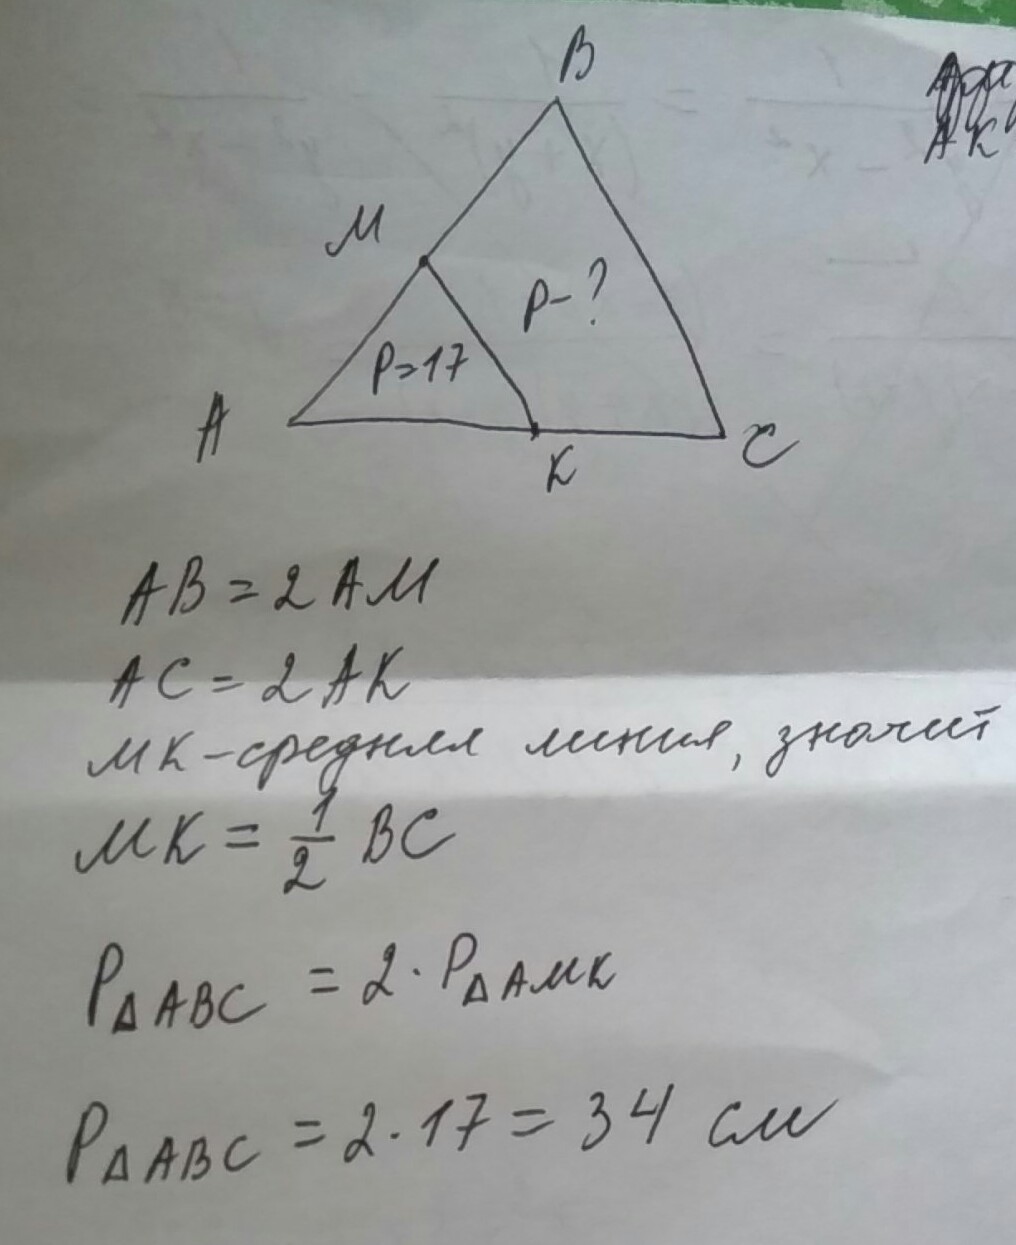 B
M
P-?
P=17
A
K
C
AK
AB = 2AM
AC = 2AK
MK-средняя линия, значит
MK = 1/2 BC
P△ABC = 2·P△AMK
P△ABC = 2·17 = 34 см